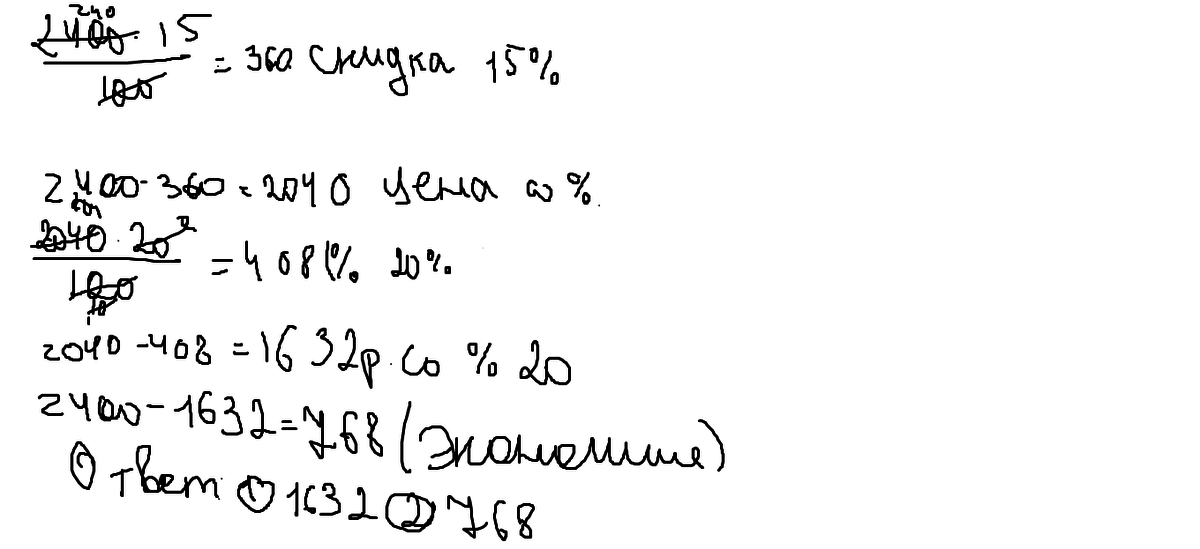 240
2400 · 15
100
= 360 скидка 15%
2400 - 360 = 2040 цена со %.
204
2040 · 20 2
100
10
= 408 (% 20%.
2040 - 408 = 1632р. со % 20
2400 - 1632 = 768 (экономише)
Ответ: ① 1632 ② 768